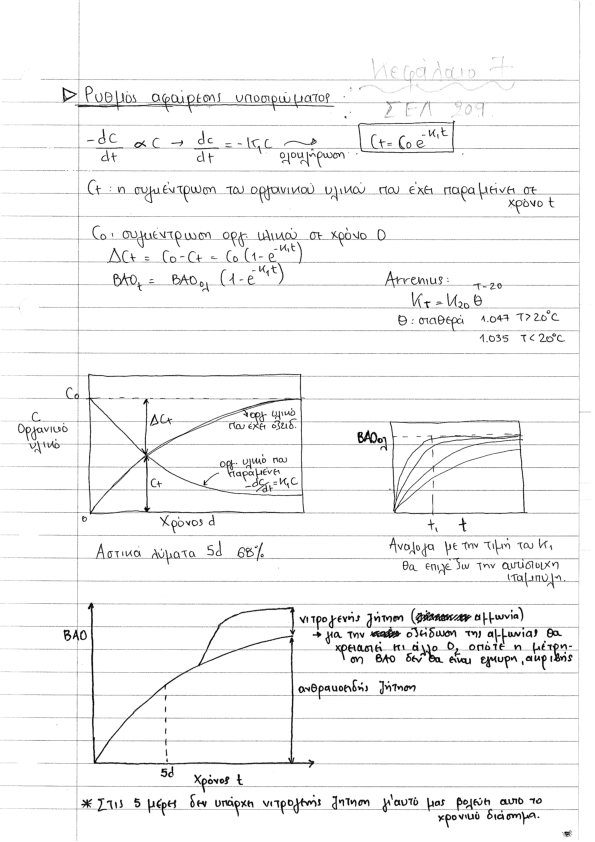 Κεφάλαιο 7
▷ Ρυθμός αφαίρεσης υποστρώματος
ΣΕΛ 209.
-dc/dt ∝ C → dc/dt = -K₁C ολοκλήρωση Ct = C₀ e^{-K₁t}
Ct : η συγκέντρωση του οργανικού υλικού που έχει παραμείνει σε
χρόνο t
C₀ : συγκέντρωση οργ. υλικού σε χρόνο 0
ΔCt = C₀ - Ct = C₀ (1-e^{-K₁t})
BAO_t = BAO_ολ (1-e^{-K₁t})
Arrenius:
K_T = K₂₀ θ^{T-20}
θ: σταθερά 1.047 T>20°C
1.035 T<20°C
C₀
C
Οργανικό
υλικό
ΔCt
οργ. υλικό
που έχει οξειδ.
Ct
οργ. υλικό που
παραμένει
-dC/dt = K₁C
0
Χρόνος d
BAO_ολ
t₁ t
Αστικά λύματα 5d 68%
Ανάλογα με την τιμή του K₁
θα επιλέξω την αντίστοιχη
καμπύλη.
BAO
νιτρογενής ζήτηση (αμμωνία)
→ για την οξείδωση της αμμωνίας θα
χρειαστεί κι άλλο O₂ οπότε η μέτρη-
ση BAO δεν θα είναι έγκυρη, ακριβής
ανθρακοειδής ζήτηση
5d
Χρόνος t
* Στις 5 μέρες δεν υπάρχει νιτρογενής ζήτηση γι'αυτό μας βολεύει αυτό το
χρονικό διάστημα.